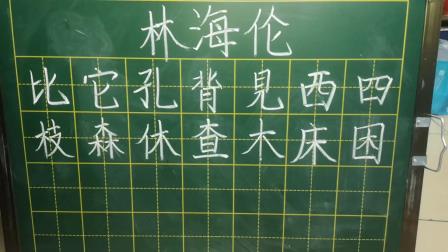 林海伦
比它孔背見西四
枝森休查木床困